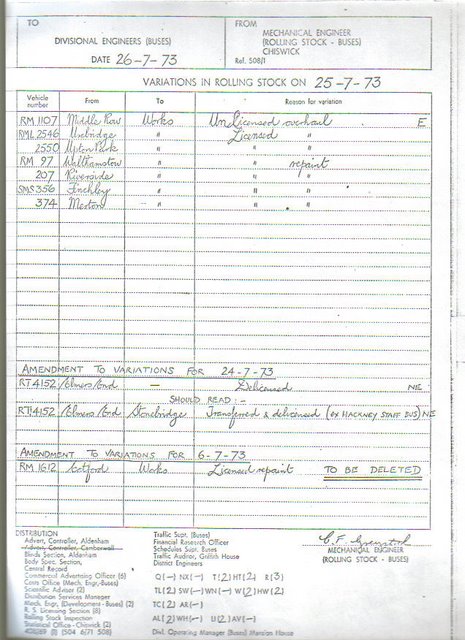 TO
DIVISIONAL ENGINEERS (BUSES)
DATE 26-7-73
FROM
MECHANICAL ENGINEER
(ROLLING STOCK - BUSES)
CHISWICK
Ref. 508/1
VARIATIONS IN ROLLING STOCK ON 25-7-73
Vehicle number From To Reason for variation
RM 1107 Middle Row Works UnLicensed overhaul E
RML 2546 Uxbridge " Licensed "
2550 Upton Park " " "
RM 97 Walthamstow " " repaint
207 Riverside " " "
SMS 356 Finchley " " "
374 Merton " " "
AMENDMENT TO VARIATIONS FOR 24-7-73
RT 4152 Elmers End — Delicensed NE
SHOULD READ :-
RT 4152 Elmers End Stonebridge Transferred & delicensed (ex HACKNEY STAFF BUS) NE
AMENDMENT TO VARIATIONS FOR 6-7-73
RM 1612 Catford Works Licensed repaint TO BE DELETED
DISTRIBUTION
Advert. Controller, Aldenham
Advert. Controller, Camberwell
Blinds Section, Aldenham
Body Spec. Section,
Central Record
Commercial Advertising Officer (6)
Costs Office (Mech. Engr.-Buses)
Scientific Adviser (2)
Distribution Services Manager
Mech. Engr. (Development - Buses) (2)
R. S. Licensing Section (8)
Rolling Stock Inspection
Statistical Office - Chiswick (2)
(504 6/71 508)
Traffic Supt. (Buses)
Financial Research Officer
Schedules Supt. Buses
Traffic Auditor, Griffith House
District Engineers
Q (—) NX (—) T (2) HT (2) R (3)
TL (2) SW (—) WN (—) W (2) HW (2)
TC (2) AR (—)
AL (2) WH (—) U (2) AV (—)
Divl. Operating Manager (Buses) Mansion House
MECHANICAL ENGINEER
(ROLLING STOCK - BUSES)